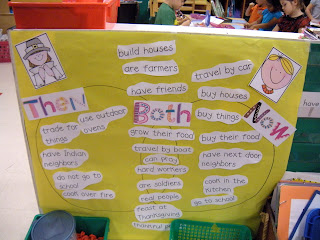 build houses
are farmers
have friends
travel by car
buy houses
Then
Both
Now
use outdoor
ovens
trade for
things
have Indian
neighbors
do not go to
school
cook over fire
grow their food
travel by boat
can pray
hard workers
are soldiers
real people
feast at
Thanksgiving
thankful
buy things
buy their food
have next door
neighbors
cook in the
kitchen
go to school